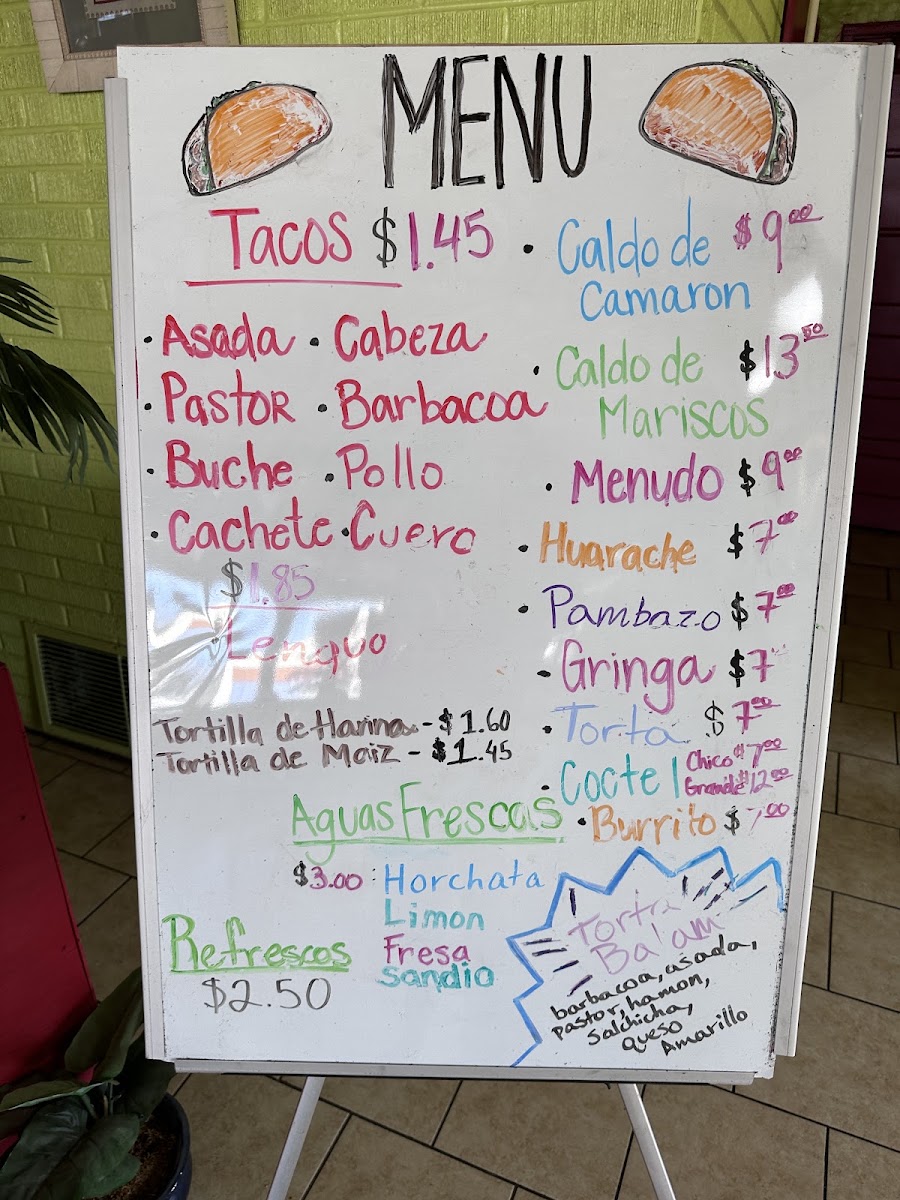 MENU
TACOS $1.45
· Asada · Cabeza
· Pastor · Barbacoa
· Buche · Pollo
· Cachete · Cuero
$1.85
· Lenguo
Tortilla de Harina - $1.60
Tortilla de Maiz - $1.45
Aguas Frescas
$3.00 : Horchata
Limon
Fresa
Sandio
Refrescos
$2.50
· Caldo de $9.00
Camaron
· Caldo de $13.50
Mariscos
· Menudo $9.00
· Huarache $7.00
· Pambazo $7.00
· Gringa $7
· Torta $7.00
· Coctel Chico $7.00
Grande $12.00
· Burrito $7.00
Torta
Balam
barbacoa, asada,
pastor, hamon,
salchicha,
queso
Amarillo